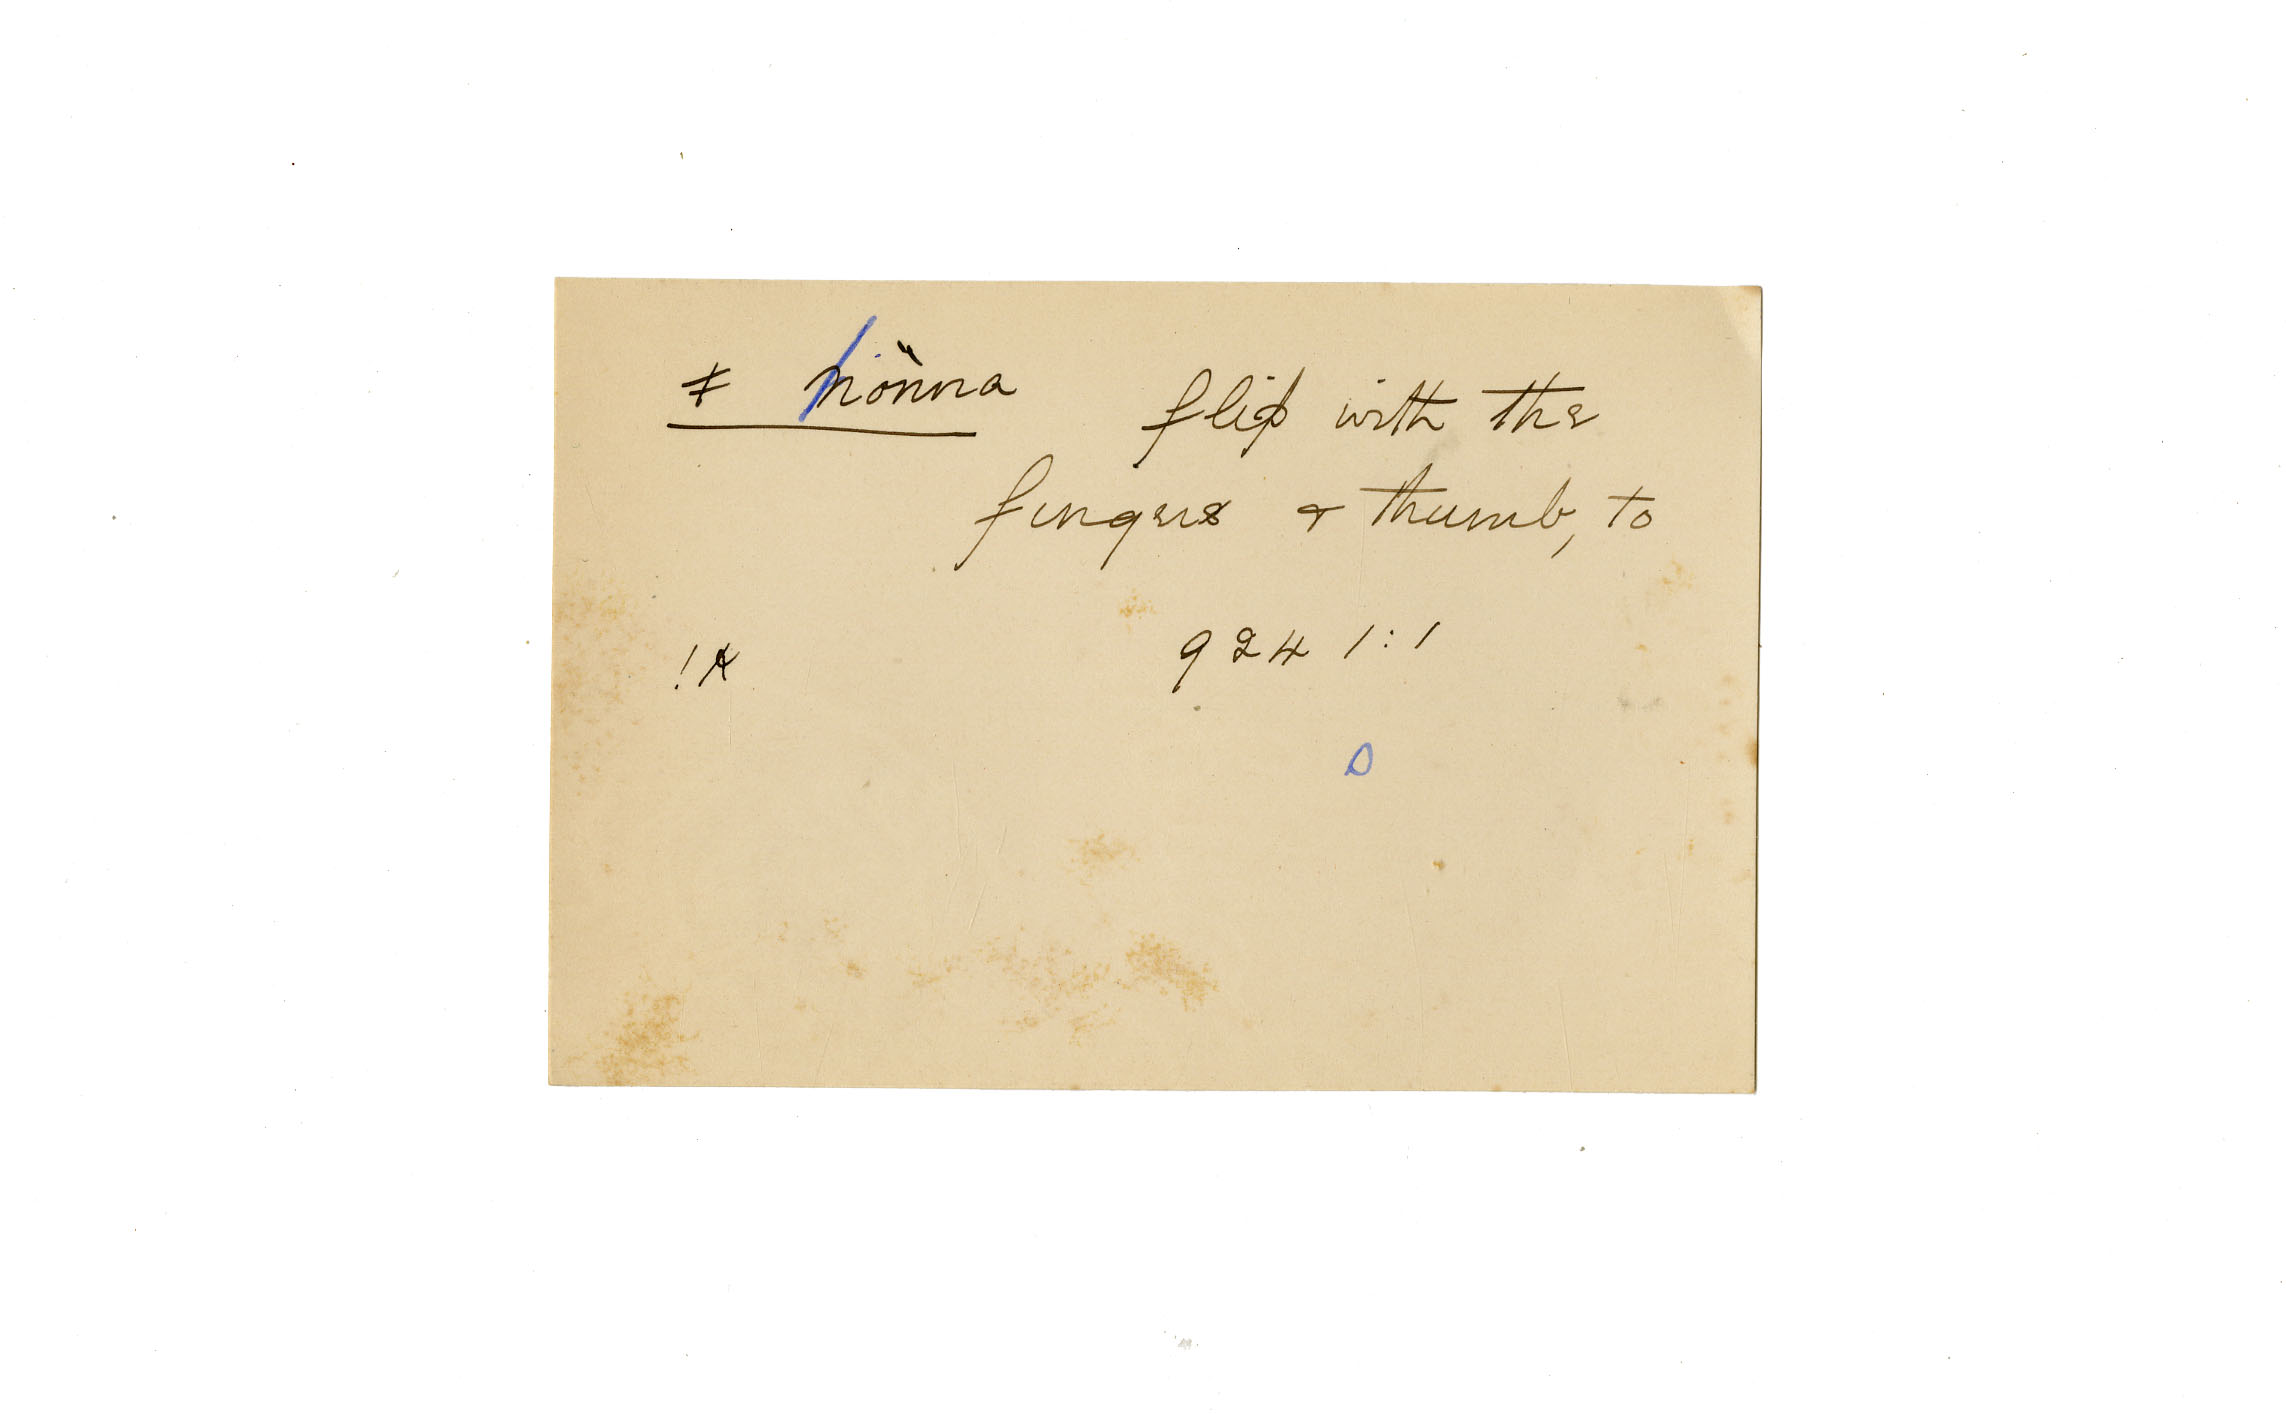 ǂ hönna flip with the
fingers & thumb, to
!ʌ 924 1:1
D